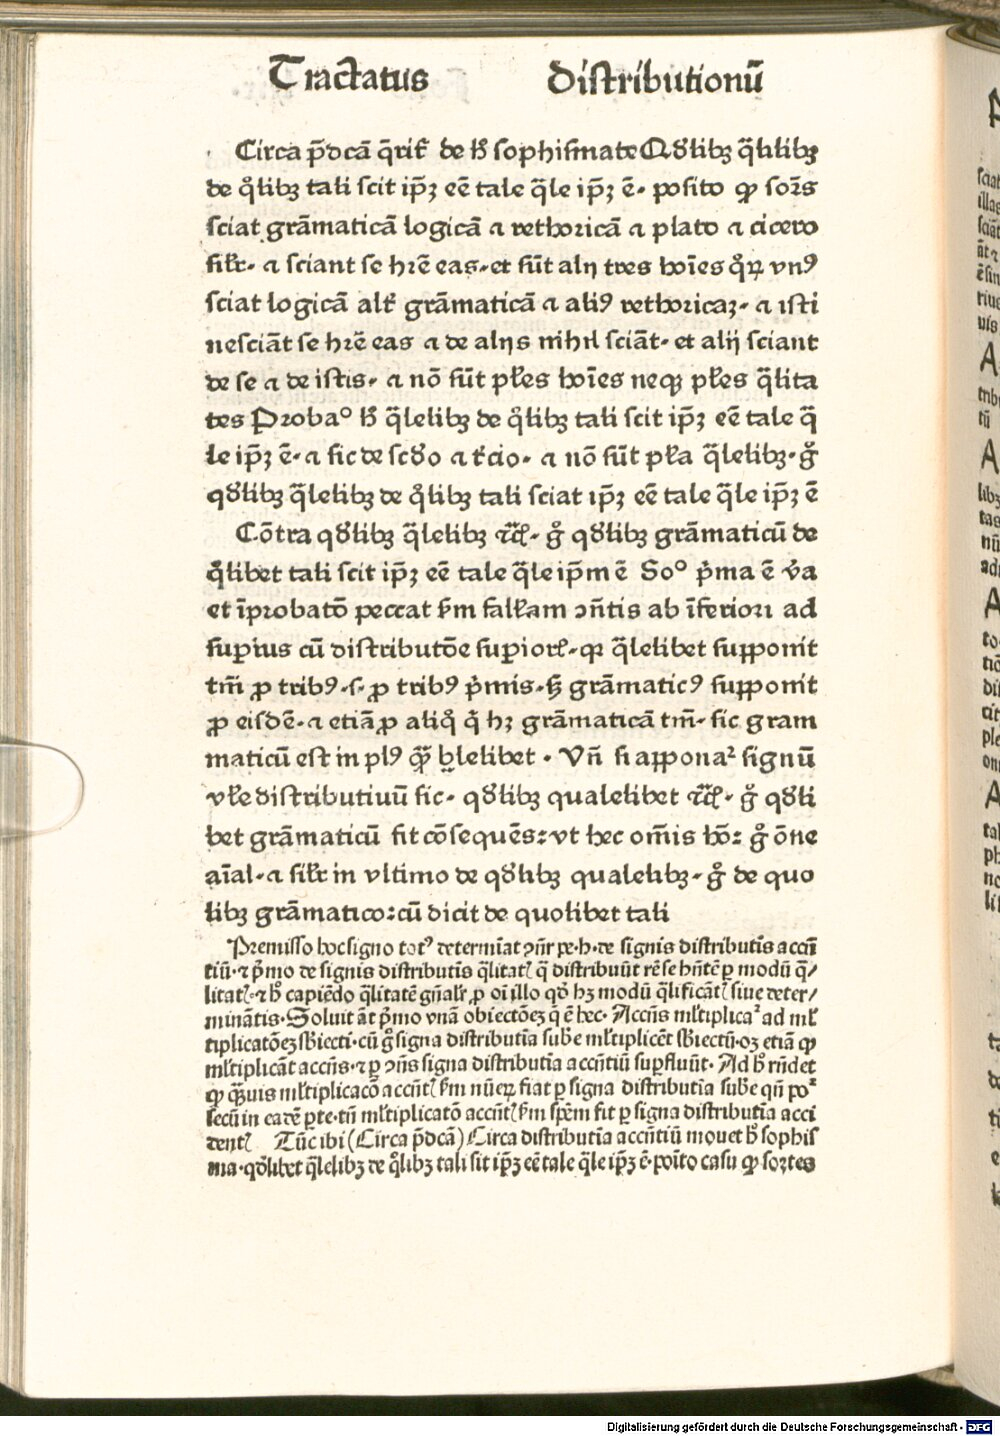 Tractatus Distributionū
Circa p̄dcā q̄rit᷑ de hͦ sophismate Qdͦlibꝫ q̄lilibꝫ
de qͦlibꝫ tali scit ip̄ꝫ eē tale q̄le ip̄ꝫ ē· posito ꝙ sor̄s
sciat grāmaticā logicā ⁊ rethoricā ⁊ plato ⁊ cicero
silr̄· ⁊ sciant se hr̄e eas·et sūt alij tres hoīes qͦꝝ vnꝰ
sciat logicā alt᷑ grāmaticā ⁊ aliꝰ rethoricaꝫ· ⁊ isti
nesciāt se hr̄e eas ⁊ de alijs nihil sciāt· et alij sciant
de se ⁊ de istis· ⁊ nō sūt pl̄es hoīes neqꝫ pl̄es q̄lita
tes Probaͦ hͦ q̄lelibꝫ de qͦlibꝫ tali scit ip̄ꝫ eē tale q̄
le ip̄ꝫ ē· ⁊ sic de scdͦo ⁊ t᷑cio· ⁊ nō sūt pl̄a q̄lelibꝫ·gͦ
qdͦlibꝫ q̄lelibꝫ de qͦlibꝫ tali sciat ip̄ꝫ eē tale q̄le ip̄ꝫ ē
Cōtra qdͦlibꝫ q̄lelibꝫ ⁊c̄· gͦ qdͦlibꝫ grāmaticū de
qͦlibet tali scit ip̄ꝫ eē tale q̄le ip̄m ē Soͦ p̄ma ē v̄a
et īprobatō peccat s̄m fall̄am ↄn̄tis ab īferiori ad
supius cū distributōe supiorꝭ·qꝛ q̄lelibet supponit
tm̄ ꝓ tribꝰ·s·ꝓ tribꝰ p̄mis·sꝫ grāmaticꝰ supponit
ꝓ eisdē·⁊ etiā ꝓ aliqͦ q̄ hꝫ grāmaticā tm̄· sic gram
maticū est in plꝰ qͣꝫ q̄lelibet · Vn̄ si apponaᷣ signū
vl̄e distributiuū sic· qdͦlibꝫ qualelibet ⁊c̄· gͦ qdͦli
bet grāmaticū fit cōsequēs:vt hec om̄is hō: gͦ ōne
aīal·⁊ silr̄ in vltimo de qdͦlibꝫ qualelibꝫ·gͦ de quo
libꝫ grāmatico:cū dicit de quolibet tali
Premisso hoc signo totꝰ determīat ↄn̄r pe·h·de signis distributīs accn̄
tiū·⁊ p̄mo de signis distributīs q̄litatꝭ q̄ distribuūt rē se hn̄tē ꝑ modū q̄/
litatꝭ·⁊ hͦ capiēdo q̄litatē gn̄alr̄ ꝓ oī illo qdͦ hꝫ modū q̄lificātꝭ siue deter/
minātis·Soluit āt p̄mo vnā obiectōeꝫ q̄ ē hec· Accn̄s ml̄tiplicaᷣ ad ml̄
tiplicatōeꝫ sb̄iecti·cū gͦ signa distributīa sub̄e ml̄tiplicēt sb̄iectū·oꝫ etiā ꝙ
ml̄tiplicāt accn̄s·⁊ ꝑ ↄn̄s signa distributīa accn̄tiū supfluūt· Ad hͦ rn̄det
ꝙ qͣꝫuis ml̄tiplicacō accn̄tꝭ s̄m nūeꝝ fiat ꝑ signa distributīa sub̄e qn̄ poᷣ
secū in eadē pte·tn̄ ml̄tiplicatō accn̄tꝭ s̄m spēm fit ꝑ signa distributīa acci
dentꝭ Tūc ibi (Circa p̄dcā) Circa distributīa accn̄tiū mouet hͦ sophis
ma·qdͦlibet q̄lelibꝫ de qͦlibꝫ tali sit ip̄ꝫ eē tale q̄le ip̄ꝫ ē·poīto casu ꝙ sortes
Digitalisierung gefördert durch die Deutsche Forschungsgemeinschaft - DFG